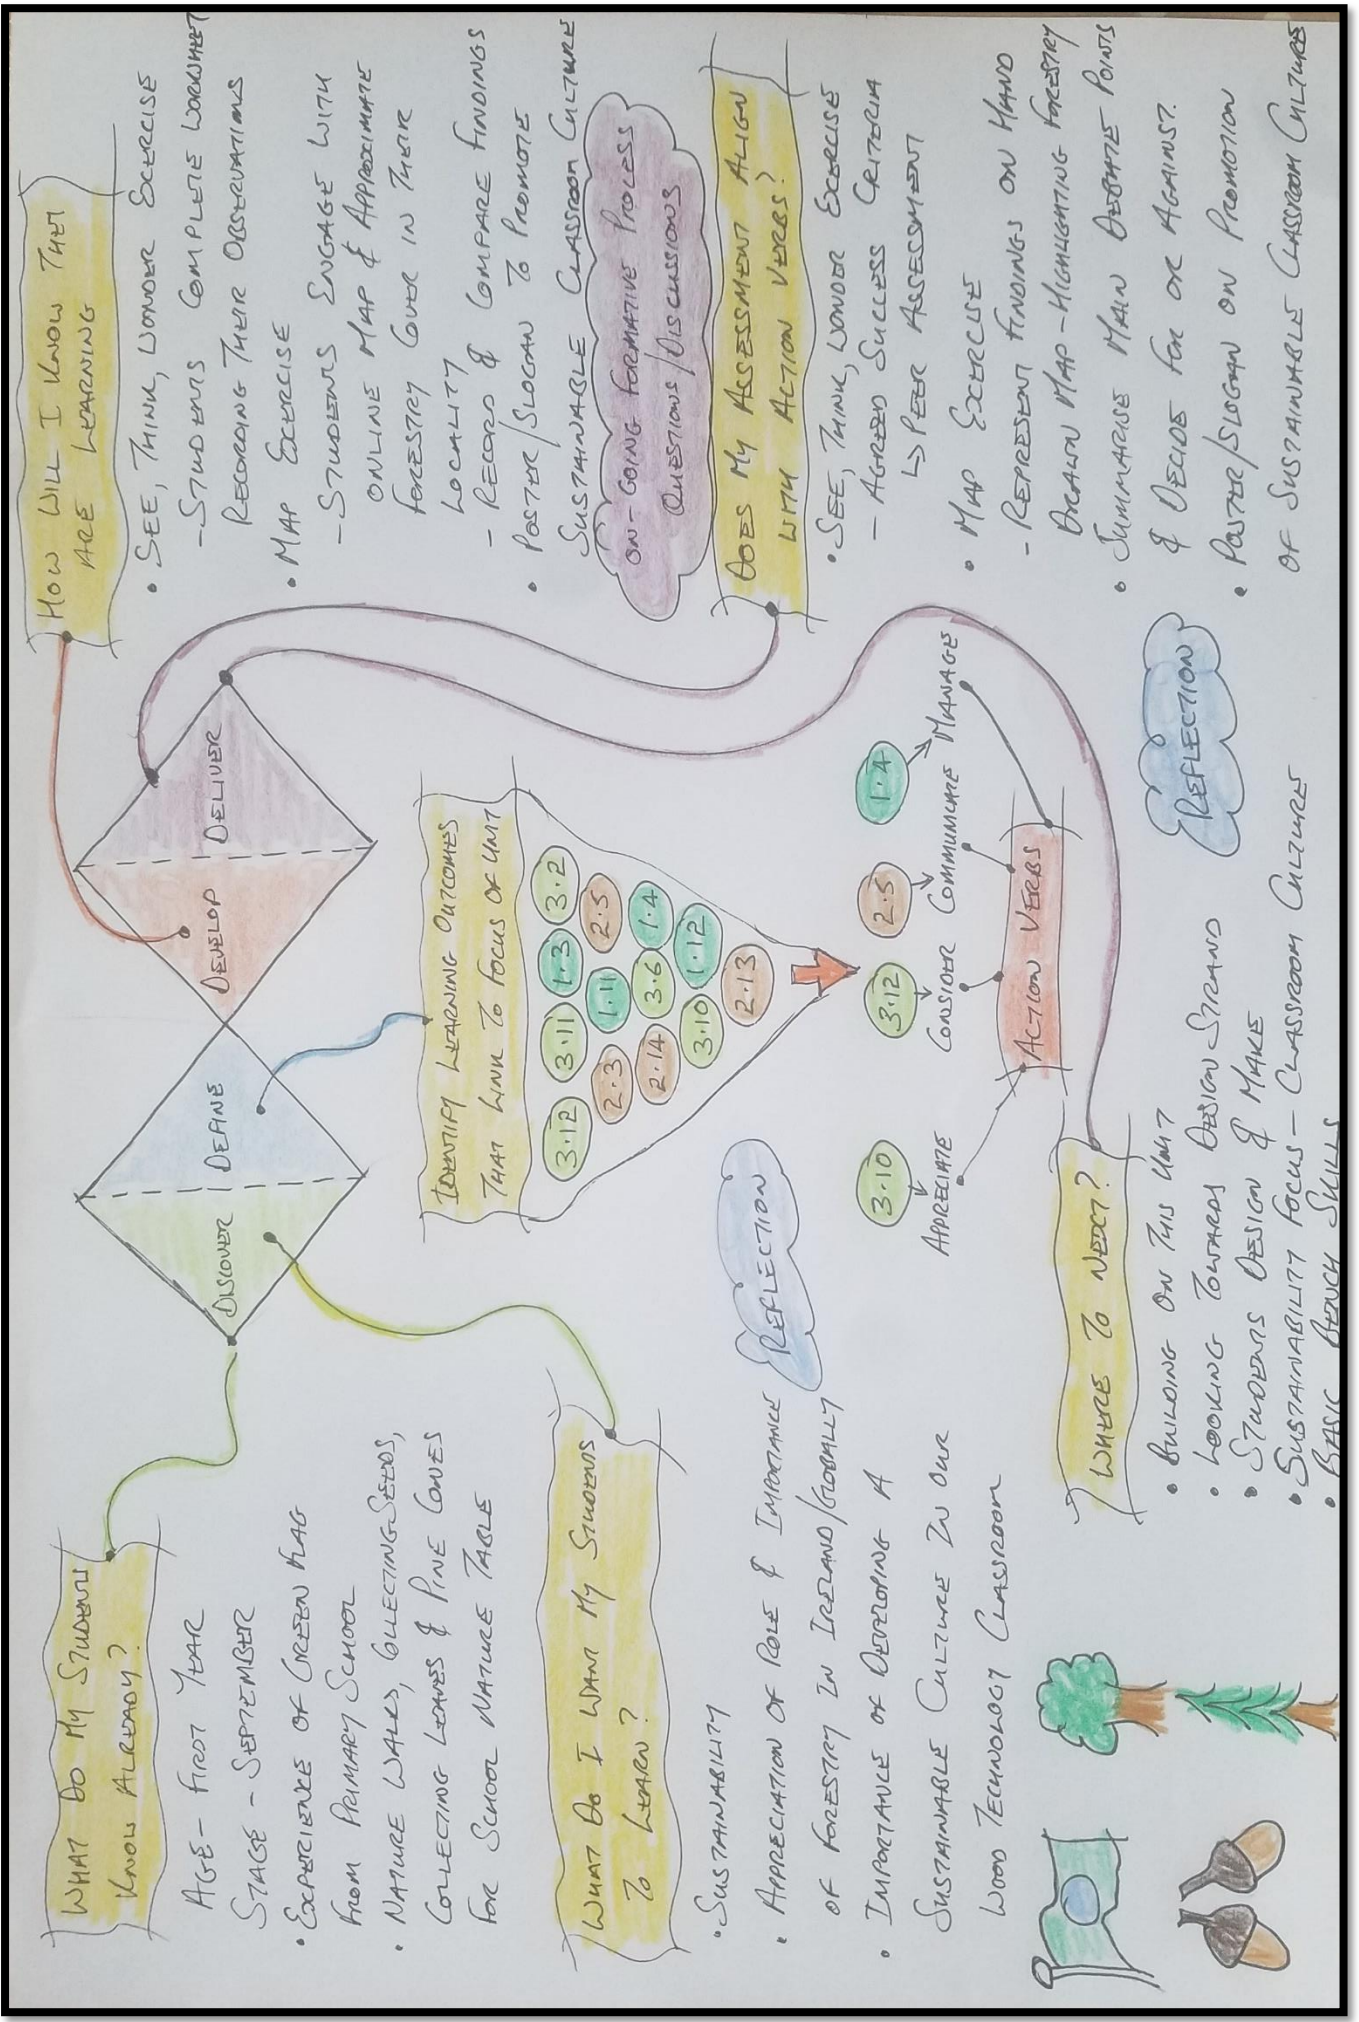 WHAT DO MY STUDENTS
KNOW ALREADY?
AGE - FIRST YEAR
STAGE - SEPTEMBER
• EXPERIENCE OF GREEN FLAG
FROM PRIMARY SCHOOL
• NATURE WALKS, COLLECTING SEEDS,
COLLECTING LEAVES & PINE CONES
FOR SCHOOL NATURE TABLE
WHAT DO I WANT MY STUDENTS
TO LEARN?
• SUSTAINABILITY
• APPRECIATION OF ROLE & IMPORTANCE
OF FORESTRY IN IRELAND/GLOBALLY
• IMPORTANCE OF DEVELOPING A
SUSTAINABLE CULTURE IN OUR
WOOD TECHNOLOGY CLASSROOM
DISCOVER
DEFINE
DEVELOP
DELIVER
IDENTIFY LEARNING OUTCOMES
THAT LINK TO FOCUS OF UNIT
3.12 3.11 1.3 3.2
2.3 1.11 2.5
2.14 3.6 1.4
3.10 1.12
2.13
REFLECTION
3.10 3.12 2.5 1.4
APPRECIATE CONSIDER COMMUNICATE MANAGE
ACTION VERBS
WHERE TO NEXT?
• BUILDING ON THIS UNIT
• LOOKING TOWARDS DESIGN STRAND
• STUDENTS DESIGN & MAKE
• SUSTAINABILITY FOCUS - CLASSROOM CULTURE
• BASIC BENCH SKILLS
HOW WILL I KNOW THEY
ARE LEARNING
• SEE, THINK, WONDER EXERCISE
- STUDENTS COMPLETE WORKSHEET
RECORDING THEIR OBSERVATIONS
• MAP EXERCISE
- STUDENTS ENGAGE WITH
ONLINE MAP & APPROXIMATE
FORESTRY COVER IN THEIR
LOCALITY
- RECORD & COMPARE FINDINGS
• POSTER/SLOGAN TO PROMOTE
SUSTAINABLE CLASSROOM CULTURE
ON-GOING FORMATIVE PROCESS
QUESTIONS/DISCUSSIONS
DOES MY ASSESSMENT ALIGN
WITH ACTION VERBS?
• SEE, THINK, WONDER EXERCISE
- AGREED SUCCESS CRITERIA
↳ PEER ASSESSMENT
• MAP EXERCISE
- REPRESENT FINDINGS ON HAND
DRAWN MAP - HIGHLIGHTING FORESTRY
• SUMMARISE MAIN DEBATE POINTS
& DECIDE FOR OR AGAINST.
• POSTER/SLOGAN ON PROMOTION
OF SUSTAINABLE CLASSROOM CULTURE
REFLECTION